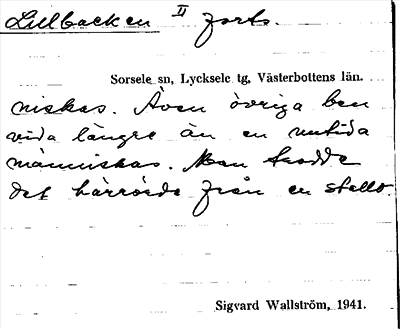 Lillbacken II forts.
Sorsele sn, Lycksele tg, Västerbottens län.
niskas. Även övriga ben
vida längre än en nutida
människas. Man trodde
det härrörde från en stallo.
Sigvard Wallström, 1941.